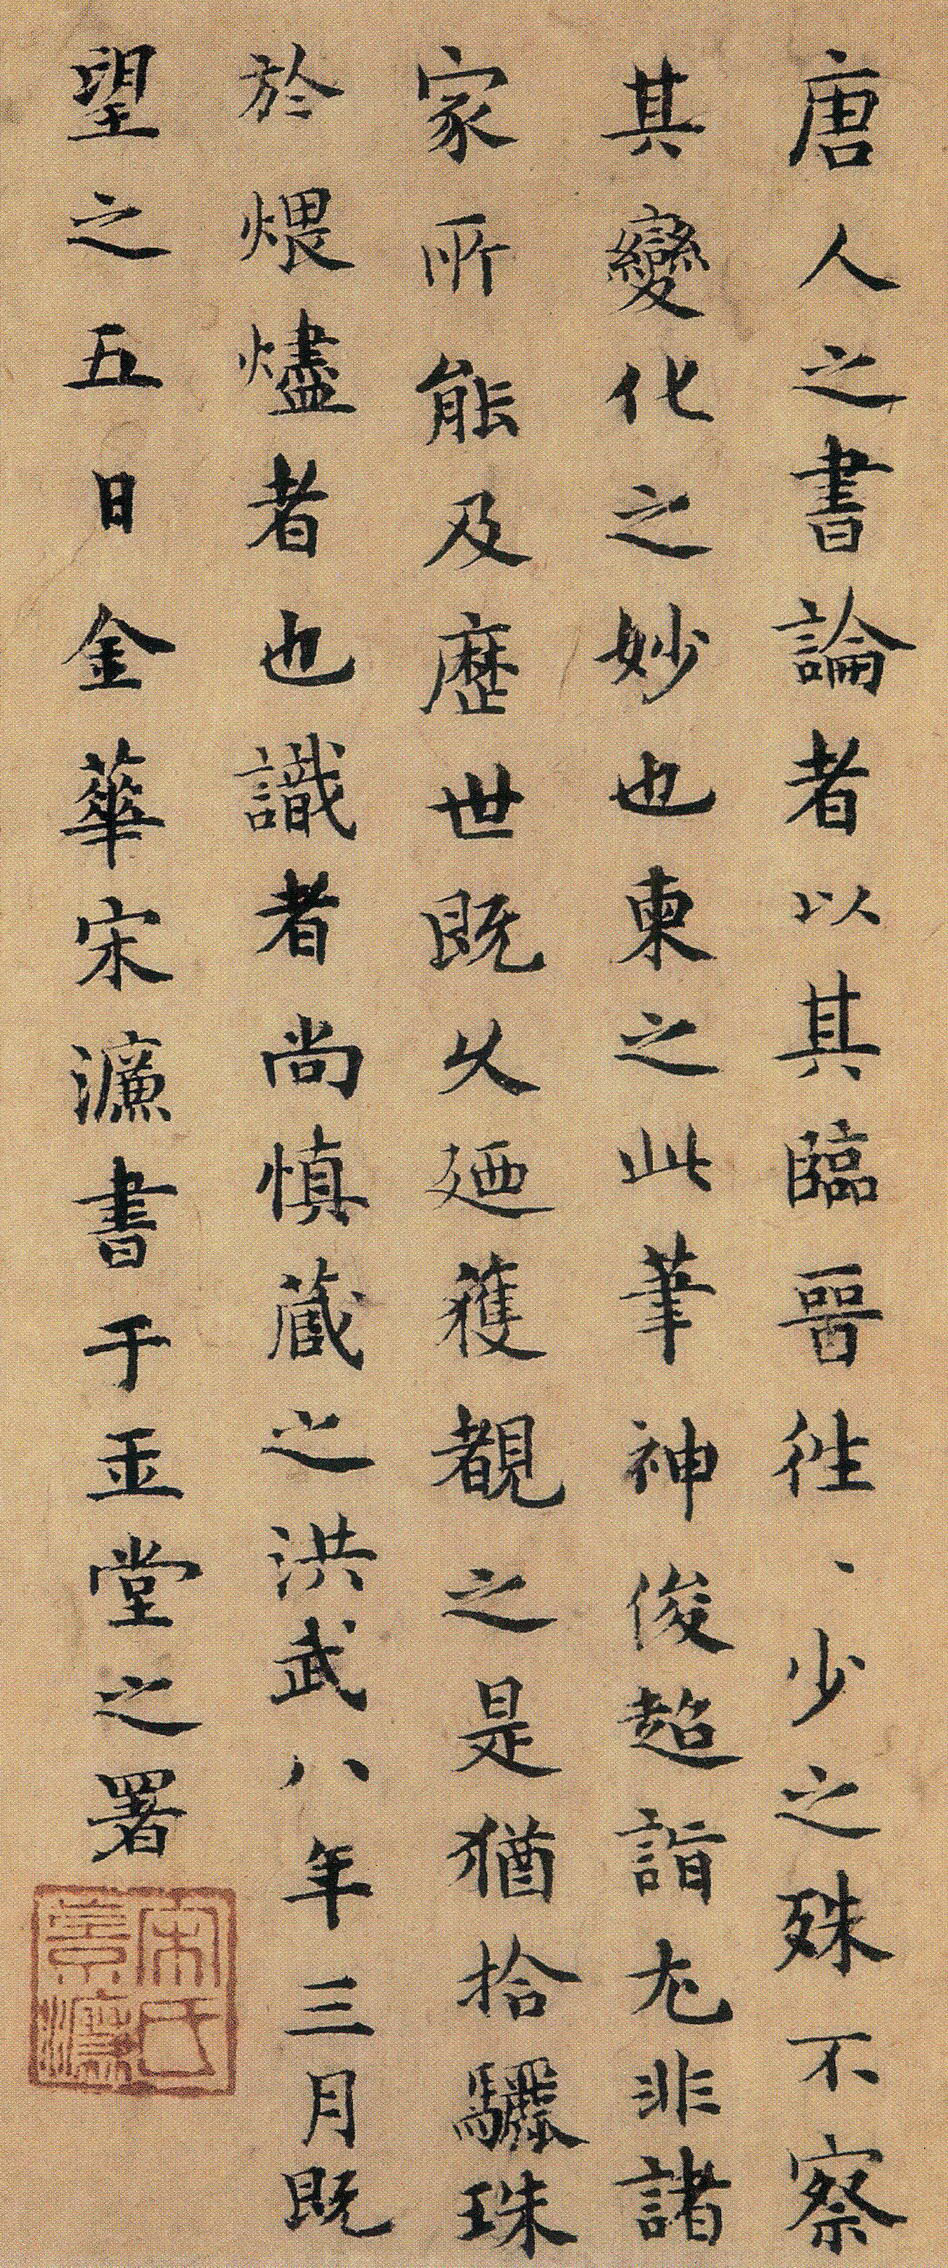 唐人之書論者以其臨晉往〻少之殊不察
其變化之妙也柬之此筆神俊超詣尤非諸
家所能及歷世既久廼獲覩之是猶拾驪珠
於煨燼者也識者尚慎藏之洪武八年三月既
望之五日金華宋濂書于玉堂之署
宋氏景濂